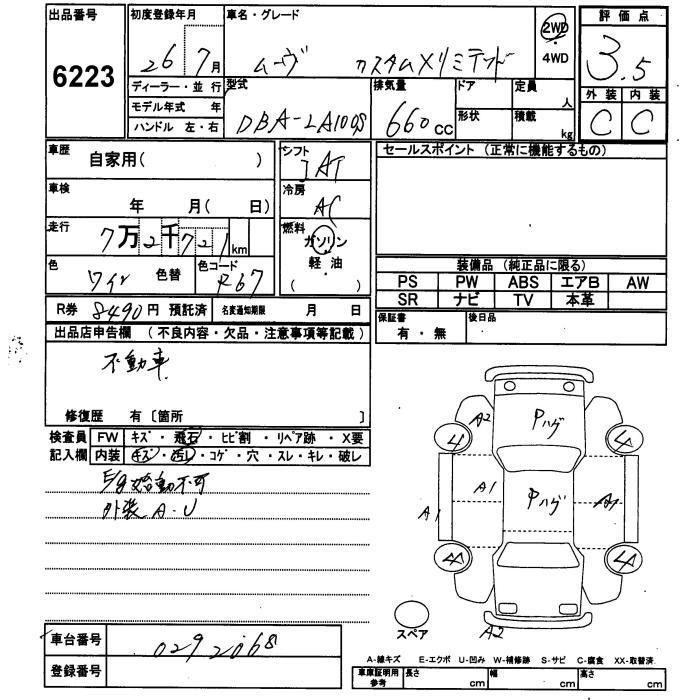 出品番号
6223
初度登録年月
26 7月
ディーラー・並行
モデル年式 年
ハンドル 左・右
車名・グレード
ムーヴ カスタムXリミテッド
2WD
・
4WD
型式
DBA-LA100S
排気量
660cc
ドア
形状
定員
人
積載
kg
評価点
3.5
外装 内装
C C
車歴
自家用( )
車検
年 月( 日)
走行
7万2千721km
色
ワイン 色替
色コード
R67
シフト
IAT
冷房
AC
燃料
ガソリン
軽・油
( )
R券 8490円 預託済
名変通知期限 月 日
セールスポイント (正常に機能するもの)
装備品 (純正品に限る)
PS PW ABS エアB AW
SR ナビ TV 本革
保証書
有・無
後日品
出品店申告欄 (不良内容・欠品・注意事項等記載)
不動車
修復歴 有〔箇所 〕
検査員
記入欄
FW キズ・飛石・ヒビ割・リペア跡・X要
内装 キズ・汚レ・コゲ・穴・スレ・キレ・破レ
E/g始動不可
外装A.U
A2 Pハゲ
4 4
A1 Pハゲ A1
A1
4 4
スペア
A2
車台番号 0292068
登録番号
A-線キズ E-エクボ U-凹み W-補修跡 S-サビ C-腐食 XX-取替済
車庫証明用
参考
長さ cm
幅 cm
高さ cm